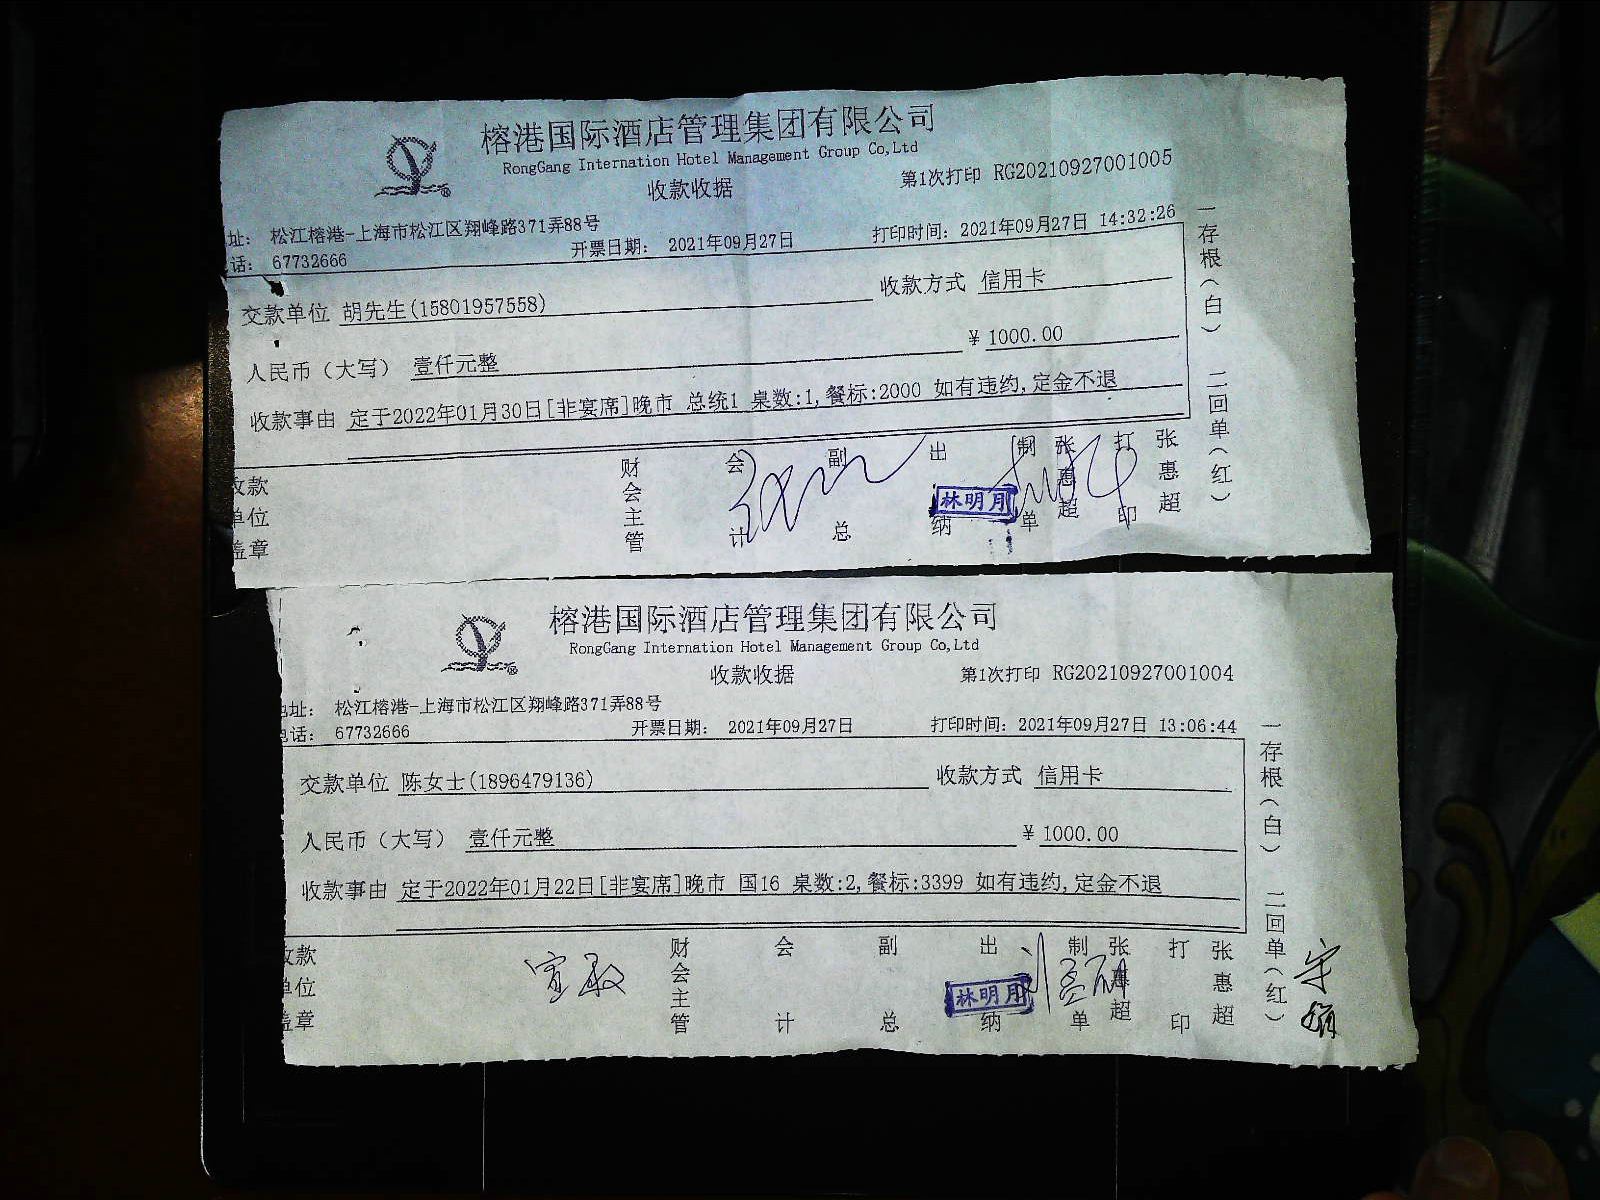 榕港国际酒店管理集团有限公司
RongGang Internation Hotel Management Group Co,Ltd
收款收据
第1次打印 RG20210927001005
址： 松江榕港-上海市松江区翔峰路371弄88号
话： 67732666
开票日期： 2021年09月27日
打印时间： 2021年09月27日 14:32:26
交款单位 胡先生(15801957558)
收款方式 信用卡
人民币（大写） 壹仟元整
¥ 1000.00
收款事由 定于2022年01月30日[非宴席]晚市 总统1 桌数:1,餐标:2000 如有违约,定金不退
一存根（白） 二回单（红）
收款
单位
盖章
财会主管
会计
副总
出纳
林明月
制单
张惠超
打印
张惠超
榕港国际酒店管理集团有限公司
RongGang Internation Hotel Management Group Co,Ltd
收款收据
第1次打印 RG20210927001004
地址： 松江榕港-上海市松江区翔峰路371弄88号
电话： 67732666
开票日期： 2021年09月27日
打印时间： 2021年09月27日 13:06:44
交款单位 陈女士(1896479136)
收款方式 信用卡
人民币（大写） 壹仟元整
¥ 1000.00
收款事由 定于2022年01月22日[非宴席]晚市 国16 桌数:2,餐标:3399 如有违约,定金不退
一存根（白） 二回单（红）
收款
单位
盖章
财会主管
会计
副总
出纳
林明月
制单
张惠超
打印
张惠超